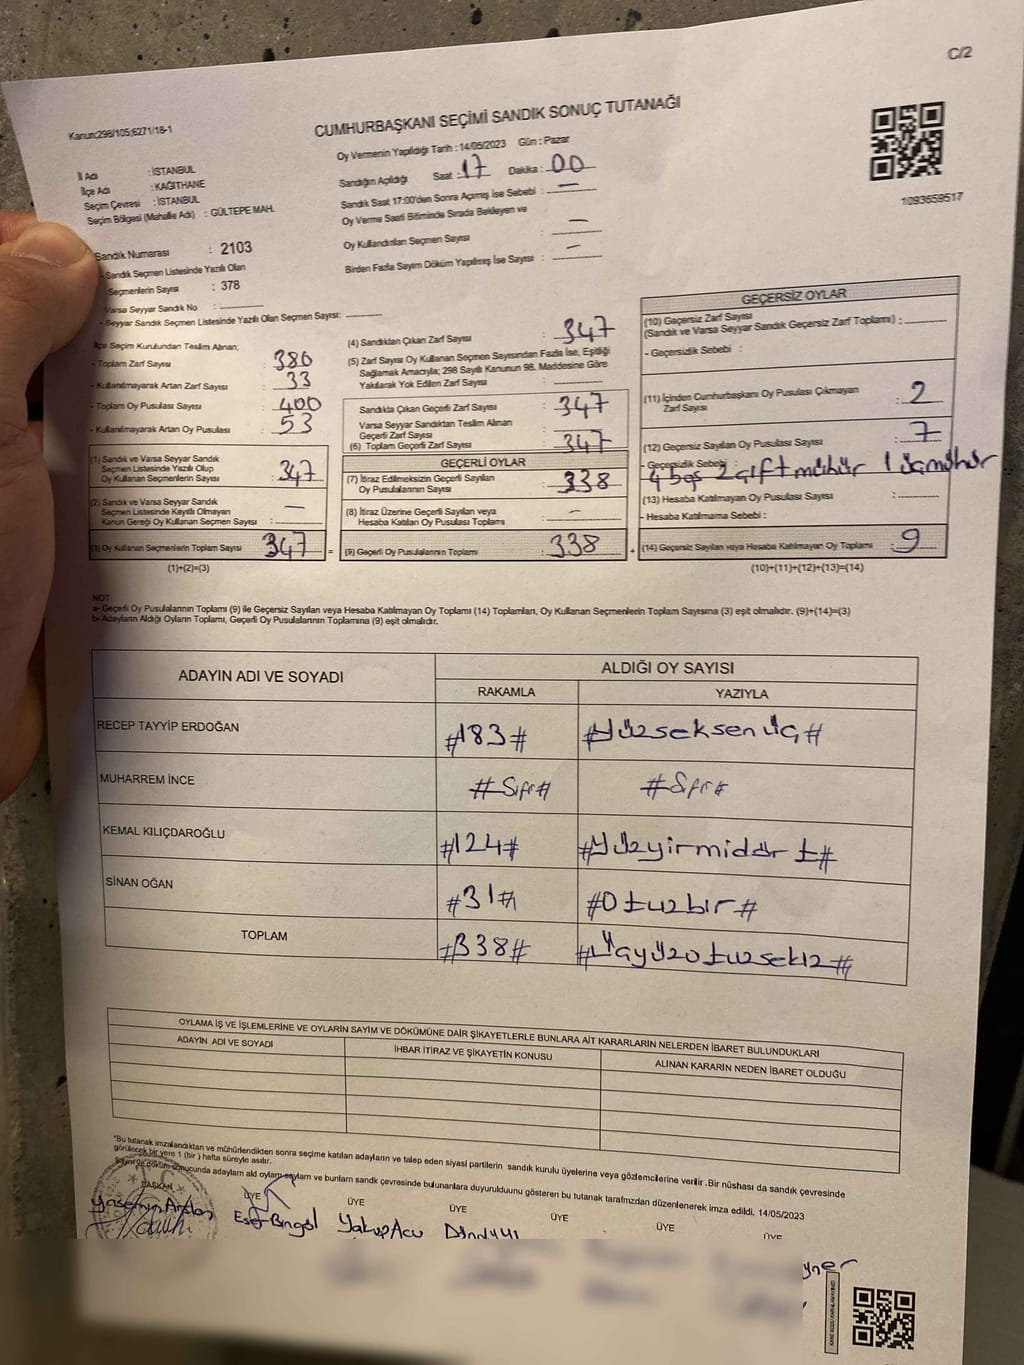 C/2
Kanun;298/105;6271/18-1
CUMHURBAŞKANI SEÇİMİ SANDIK SONUÇ TUTANAĞI
Oy Vermenin Yapıldığı Tarih : 14/05/2023 Gün : Pazar
İl Adı : İSTANBUL
İlçe Adı : KAĞITHANE
Seçim Çevresi : İSTANBUL
Seçim Bölgesi (Mahalle Adı) : GÜLTEPE MAH.
Sandığın Açıldığı Saat : 17 Dakika : 00
Sandık Saat 17:00'den Sonra Açılmış İse Sebebi : —
Oy Verme Saati Bitiminde Sırada Bekleyen ve
Oy Kullandırılan Seçmen Sayısı : —
Birden Fazla Sayım Döküm Yapılmış İse Sayısı : —
1093659517
Sandık Numarası : 2103
- Sandık Seçmen Listesinde Yazılı Olan
Seçmenlerin Sayısı : 378
Varsa Seyyar Sandık No :
- Seyyar Sandık Seçmen Listesinde Yazılı Olan Seçmen Sayısı:
İlçe Seçim Kurulundan Teslim Alınan;
- Toplam Zarf Sayısı : 380
- Kullanılmayarak Artan Zarf Sayısı : 33
- Toplam Oy Pusulası Sayısı : 400
- Kullanılmayarak Artan Oy Pusulası : 53
(1) Sandık ve Varsa Seyyar Sandık
Seçmen Listesinde Yazılı Olup
Oy Kullanan Seçmenlerin Sayısı : 347
(2) Sandık ve Varsa Seyyar Sandık
Seçmen Listesinde Kayıtlı Olmayan
Kanun Gereği Oy Kullanan Seçmen Sayısı : —
(3) Oy Kullanan Seçmenlerin Toplam Sayısı 347 =
(1)+(2)=(3)
(4) Sandıktan Çıkan Zarf Sayısı : 347
(5) Zarf Sayısı Oy Kullanan Seçmen Sayısından Fazla İse, Eşitliği
Sağlamak Amacıyla; 298 Sayılı Kanunun 98. Maddesine Göre
Yakılarak Yok Edilen Zarf Sayısı :
Sandıkta Çıkan Geçerli Zarf Sayısı : 347
Varsa Seyyar Sandıktan Teslim Alınan
Geçerli Zarf Sayısı :
(6) Toplam Geçerli Zarf Sayısı : 347
GEÇERLİ OYLAR
(7) İtiraz Edilmeksizin Geçerli Sayılan
Oy Pusulalarının Sayısı : 338
(8) İtiraz Üzerine Geçerli Sayılan veya
Hesaba Katılan Oy Pusulası Toplamı : —
(9) Geçerli Oy Pusulalarının Toplamı : 338 +
GEÇERSİZ OYLAR
(10) Geçersiz Zarf Sayısı
(Sandık ve Varsa Seyyar Sandık Geçersiz Zarf Toplamı) :
- Geçersizlik Sebebi :
(11) İçinden Cumhurbaşkanı Oy Pusulası Çıkmayan
Zarf Sayısı : 2
(12) Geçersiz Sayılan Oy Pusulası Sayısı : 7
- Geçersizlik Sebebi : 4 boş 2 çift mühür 1 üç mühür
(13) Hesaba Katılmayan Oy Pusulası Sayısı :
- Hesaba Katılmama Sebebi :
(14) Geçersiz Sayılan veya Hesaba Katılmayan Oy Toplamı : 9
(10)+(11)+(12)+(13)=(14)
NOT:
a- Geçerli Oy Pusulalarının Toplamı (9) ile Geçersiz Sayılan veya Hesaba Katılmayan Oy Toplamı (14) Toplamları, Oy Kullanan Seçmenlerin Toplam Sayısına (3) eşit olmalıdır. (9)+(14)=(3)
b- Adayların Aldığı Oyların Toplamı, Geçerli Oy Pusulalarının Toplamına (9) eşit olmalıdır.
ADAYIN ADI VE SOYADI
ALDIĞI OY SAYISI
RAKAMLA YAZIYLA
RECEP TAYYİP ERDOĞAN #183# #Yüzseksenüç#
MUHARREM İNCE #Sıfır# #Sıfır#
KEMAL KILIÇDAROĞLU #124# #Yüzyirmidört#
SİNAN OĞAN #31# #Otuzbir#
TOPLAM #338# #Üçyüzotuzsekiz#
OYLAMA İŞ VE İŞLEMLERİNE VE OYLARIN SAYIM VE DÖKÜMÜNE DAİR ŞİKAYETLERLE BUNLARA AİT KARARLARIN NELERDEN İBARET BULUNDUKLARI
ADAYIN ADI VE SOYADI
İHBAR İTİRAZ VE ŞİKAYETİN KONUSU
ALINAN KARARIN NEDEN İBARET OLDUĞU
*Bu tutanak imzalandıktan ve mühürlendikten sonra seçime katılan adayların ve talep eden siyasi partilerin sandık kurulu üyelerine veya gözlemcilerine verilir .Bir nüshası da sandık çevresinde
görülecek bir yere 1 (bir ) hafta süreyle asılır.
döküm sonucunda adayların ald oyların sayların ve bunların sandık çevresinde bulunanlara duyurulduunu gösteren bu tutanak tarafmzdan düzenlenerek imza edildi. 14/05/2023
BAŞKAN ÜYE ÜYE ÜYE ÜYE ÜYE ÜYE
Yasemin Arslan Eser Bingöl Yakup Acu